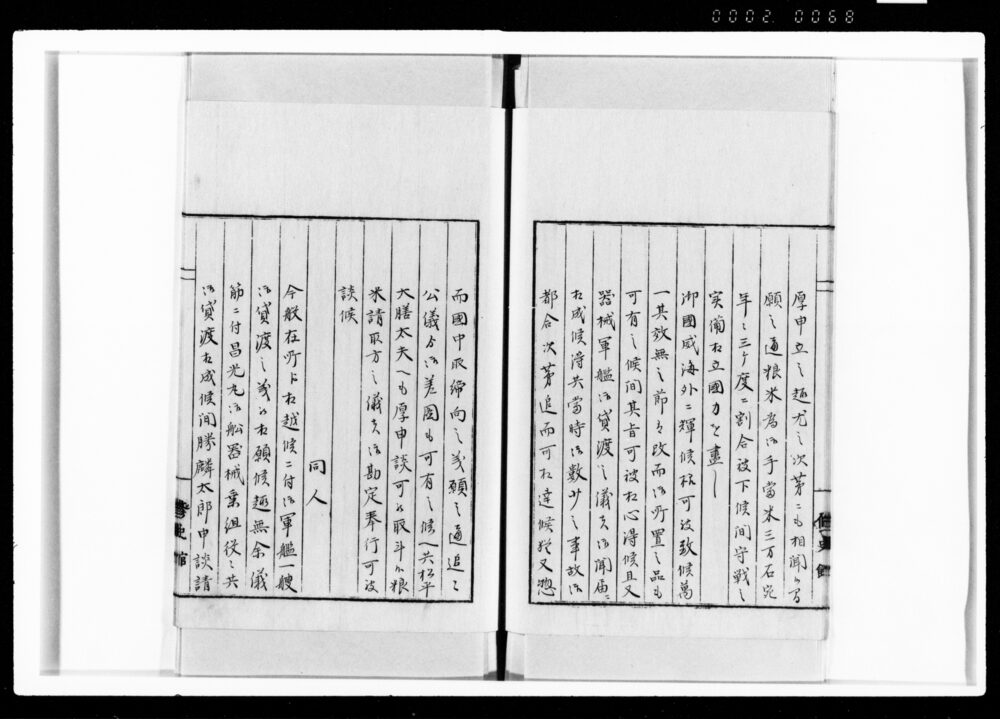 0002 0068
厚申立之趣尤之次第ニも相聞候間
願之通粮米為御手當米三万石宛
年々三ケ度ニ割合被下候間守戦之
実備相立國力を盡し
御國威海外ニ輝候様可被致候萬
一其效無之節者改而御所置之品も
可有之候間其旨可被相心得候且又
器械軍艦御貸渡之儀者御聞届ニ
相成候得共當時御数少之事故御
都合次第追而可相達候猶又惣
修史館
而國中取締向之義願之通追々
公儀より御差図も可有之候へ共松平
大膳太夫へも厚申談可被取斗候粮
米請取方之儀者御勘定奉行可被
談候
同人
今般在所に相越候ニ付御軍艦一艘
御貸渡之義被相願候趣無余儀
筋ニ付昌光丸御船器械乗組役々共
御貸渡相成候間勝麟太郎申談請
修史館